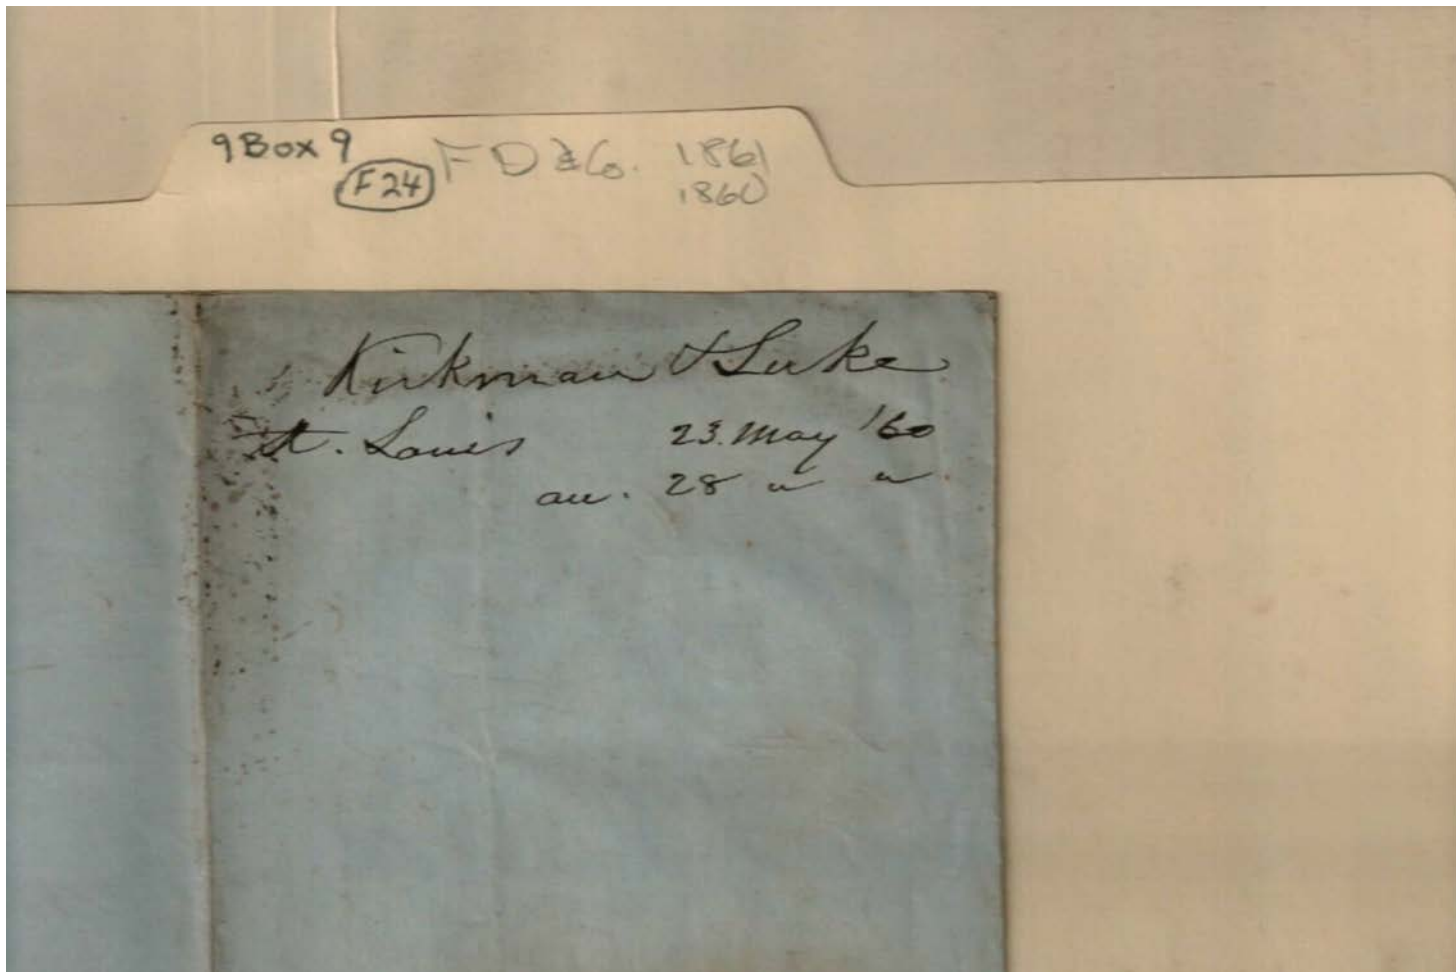 9 Box 9
F24
F D & Co. 1861
1860
Kirkman & Luke
St. Louis 23. May '60
an. 28 " "